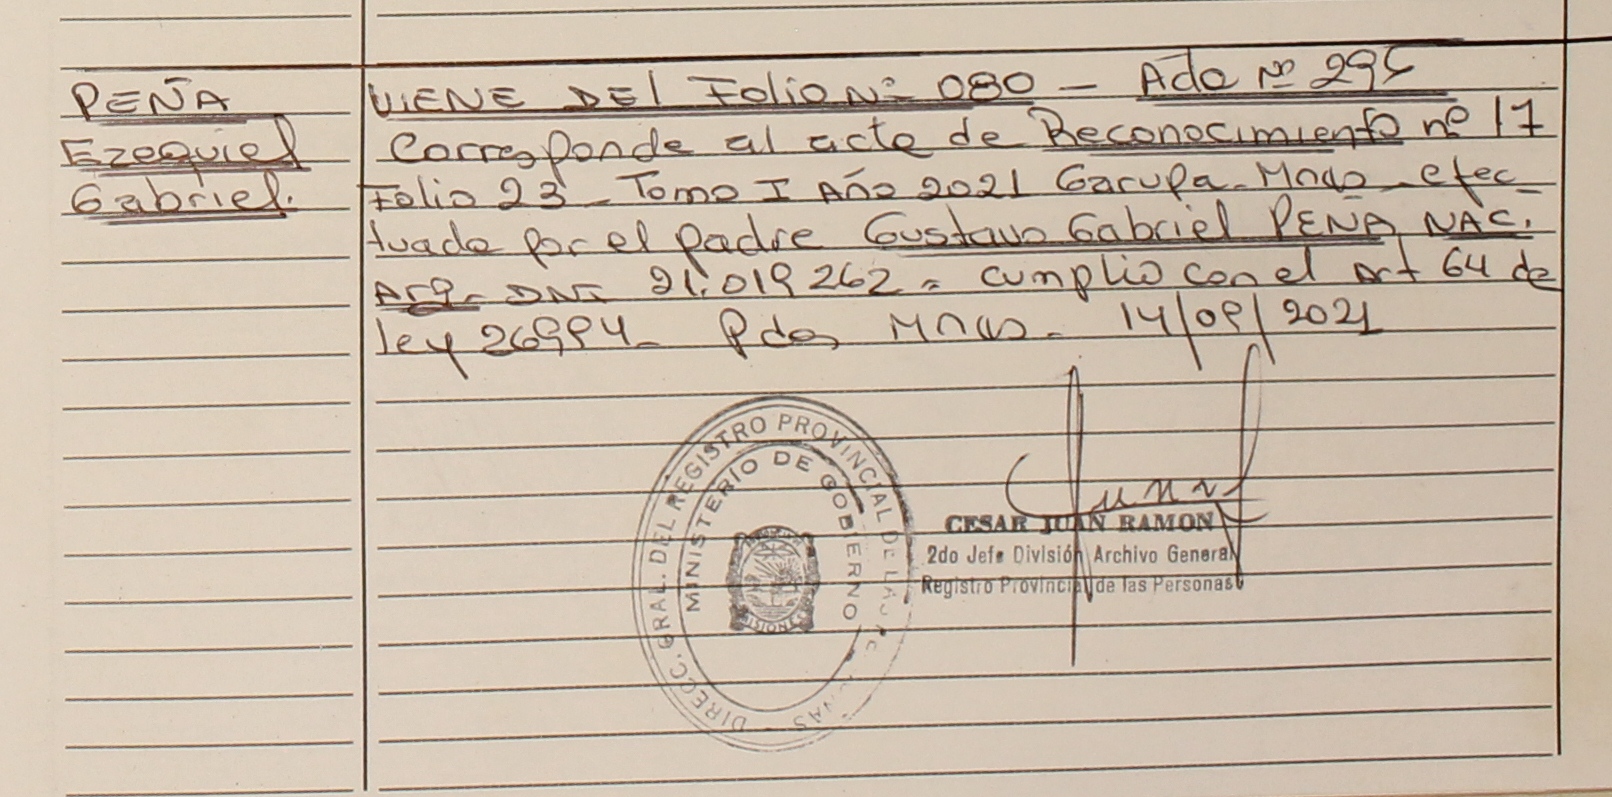 PEÑA
Ezequiel
Gabriel.
VIENE DEl Folio Nº 080 - Acta Nº 295
Corresponde al acta de Reconocimiento nº 17
Folio 23 - Tomo I Año 2021 Garupa - Mnes - efec-
tuada por el padre Gustavo Gabriel PEÑA NAC.
Arg - DNI 21.019262 = cumplio con el Art 64 de
ley 26994 - Pdas Mnes - 14/09/2021
DIRECC. GRAL. DEL REGISTRO PROVINCIAL DE LAS PERSONAS
MINISTERIO DE GOBIERNO
MISIONES
CESAR JUAN RAMON
2do Jefe División Archivo General
Registro Provincial de las Personas